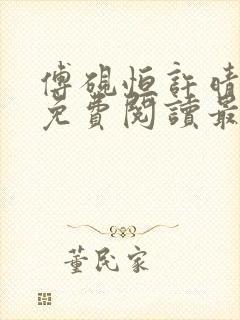 傅硯恒許晴
免費閱讀最
董民家